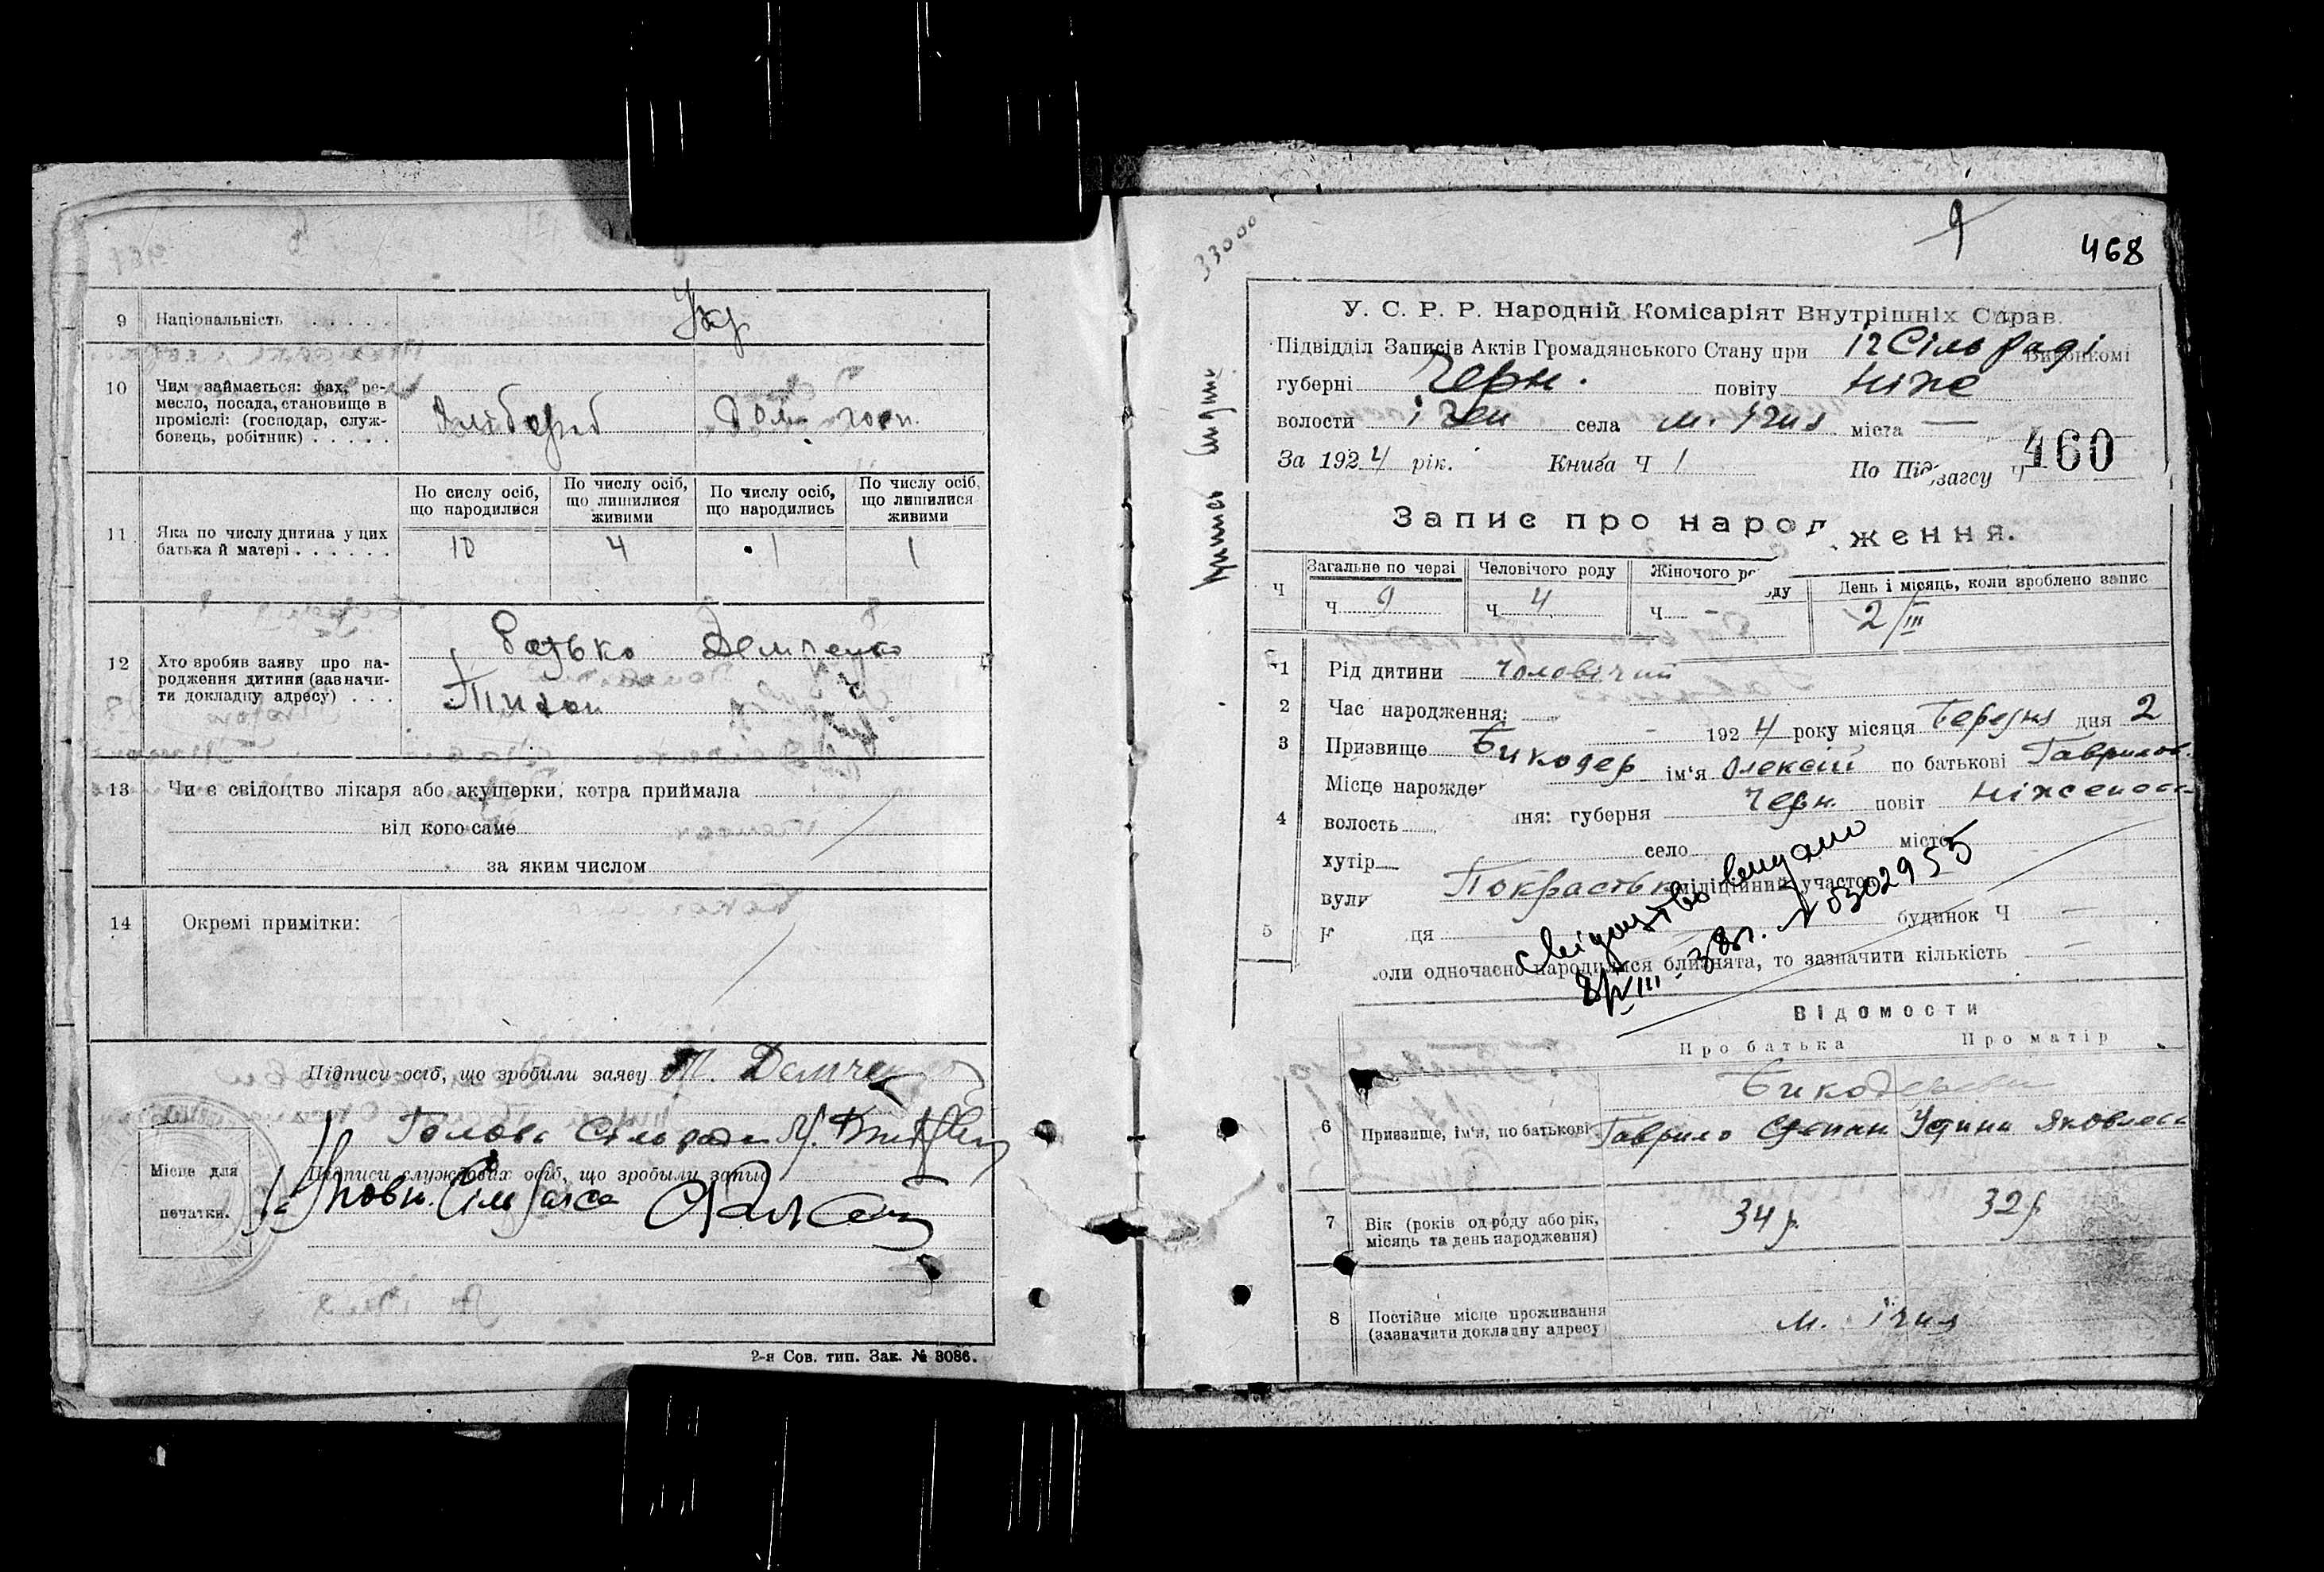 9 Національність . . . . Укр
10 Чим займається: фах, ре-
месло, посада, становище в
проміслі: (господар, служ-
бовець, робітник) . . . . . Хлібороб Дом. госп.
11 Яка по числу дитина у цих
батька й матері . . . . . .
По сислу осіб,
що народилися
По числу осіб,
що лишилися
живими
По числу осіб,
що народились
По числу осіб,
що лишилися
живими
10 4 1 1
12 Хто зробив заяву про на-
родження дитини (зазначи-
ти докладну адресу) . . .
Батько Демченко
Тихон
13 Чи є свідоцтво лікаря або акушерки, котра приймала
від кого саме
за яким числом
14 Окремі примітки:
Підписи осіб, що зробили заяву Т. Демчен
Голова Сільради
Підписи службових осіб, що зробыли запыс
Місце для
печатки.
2-я Сов. тип. Зак. № 3086.
33000
468
У. С. Р. Р. Народній Комісаріят Внутрішніх Справ.
Підвідділ Записів Актів Громадянського Стану при іч Сільраді Виконкомі
губерні Черн. повіту Ніже
волости ічен села м. ічня міста —
За 1924 рік. Книга Ч 1 По Підзагсу Ч 460
Запис про народження.
Ч Загальне по черзі Человічого роду Жіночого роду День і місяць, коли зроблено запис
Ч 9 Ч 4 Ч — 2/III
1 Рід дитини чоловічий
2 Час народження: 1924 року місяця Березня дня 2
3 Призвище Бикодер ім'я Олексій по батькові Гаврилов.
Місце нарождення: губерня Черн. повіт Ніженськ
4 волость село місто
хутір Покраст міліційний участок
вули будинок Ч —
5 Коли одночасно народилися близнята, то зазначити кількість —
Свідоцтво видано
8/VIII-38 г. № 0302955
Відомости
Про батька Про матір
Бикодер
6 Призвище, ім'я, по батькові Гаврило Степан Устина Яковлевн
7 Вік (років од роду або рік,
місяць та день народження) 34 р. 32 р
8 Постійне місце проживання
(зазначити докладну адресу) м. ічня